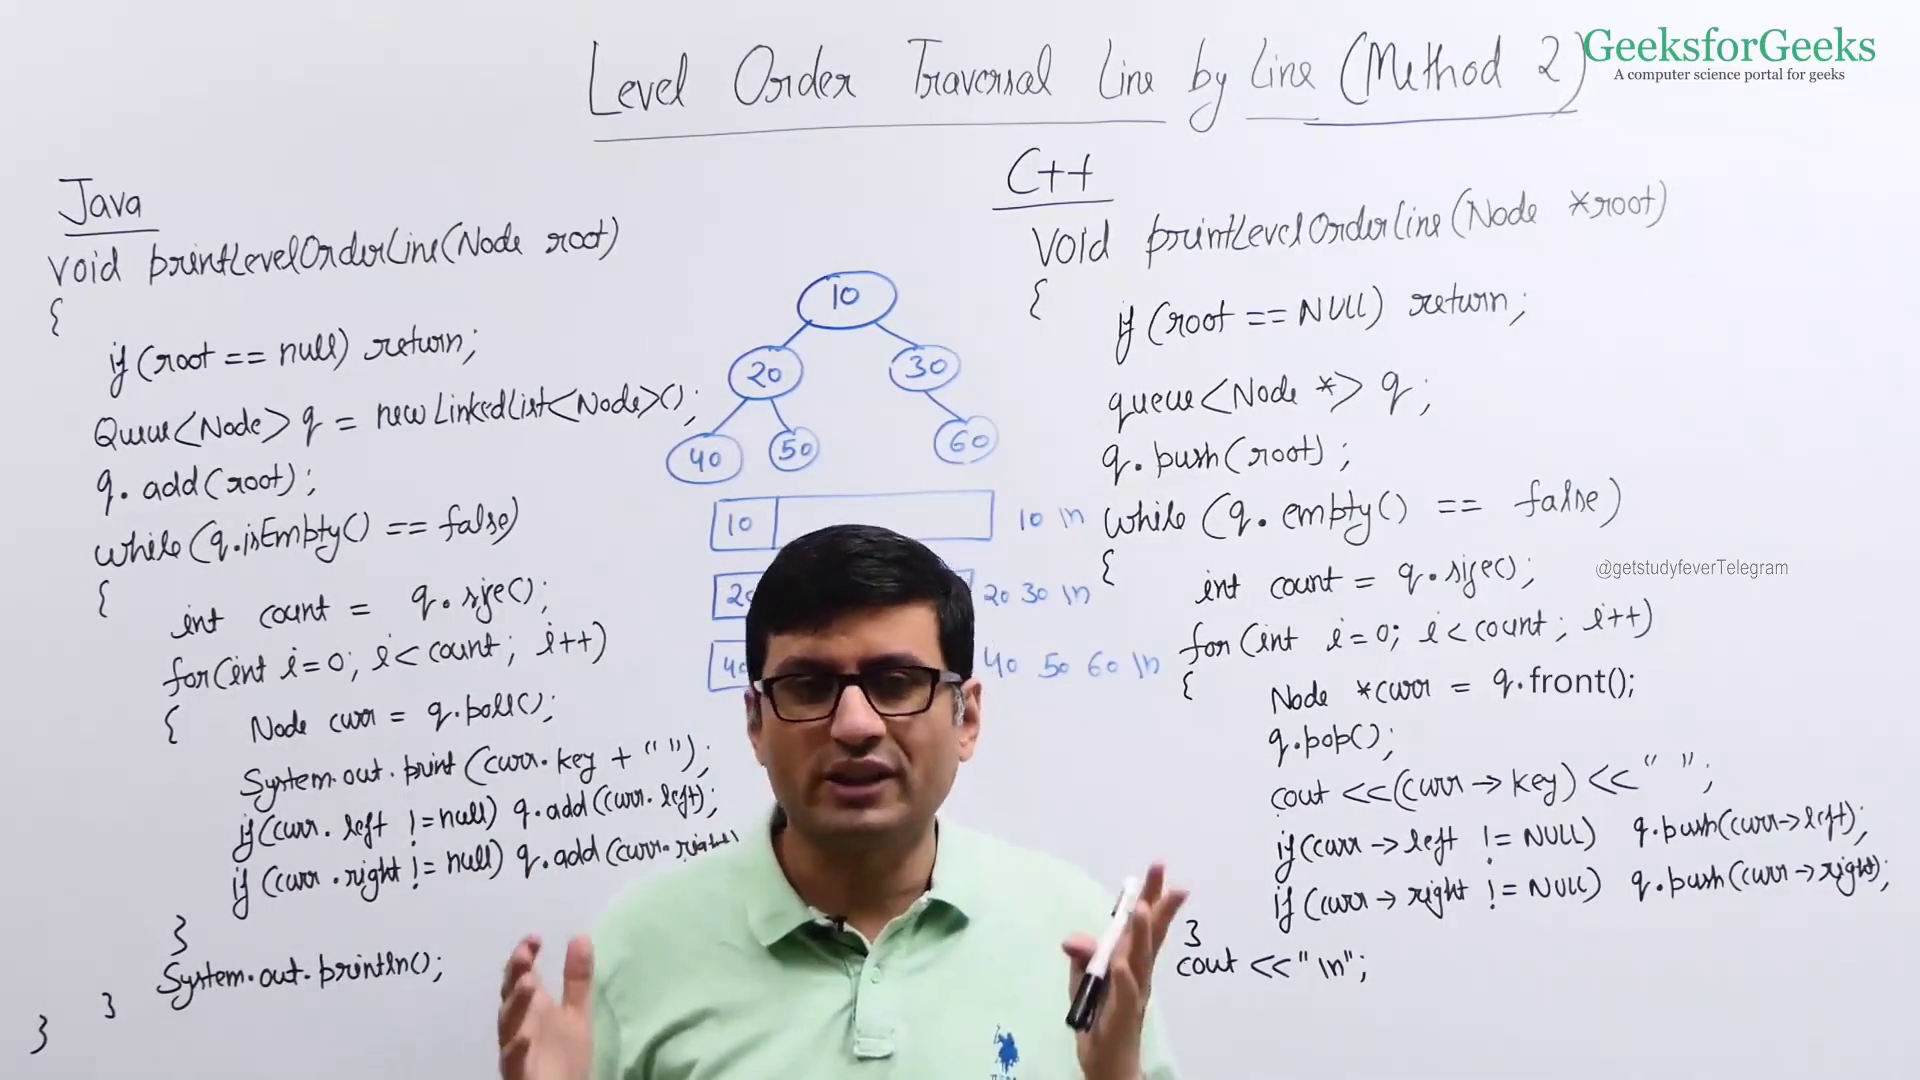 Level Order Traversal Line by Line (Method 2)
GeeksforGeeks
A computer science portal for geeks
Java
void printLevelOrderLine(Node root)
{
if (root == null) return;
Queue<Node> q = new LinkedList<Node>();
q.add(root);
while (q.isEmpty() == false)
{
int count = q.size();
for(int i=0; i<count; i++)
{ Node curr = q.poll();
System.out.print(curr.key + " ");
if(curr.left != null) q.add(curr.left);
if (curr.right != null) q.add(curr.right)
}
System.out.println();
}
}
10
20 30
40 50 60
10
10 \n
20 30 \n
40 50 60 \n
C++
void printLevelOrderLine(Node *root)
{
if (root == NULL) return;
queue<Node *> q;
q.push(root);
while (q.empty() == false)
{
@getstudyfeverTelegram
int count = q.size();
for(int i=0; i<count; i++)
{
Node *curr = q.front();
q.pop();
cout <<(curr→key) <<" ";
if(curr→left != NULL) q.push(curr→left);
if(curr→right != NULL) q.push(curr→right);
}
cout <<"\n";